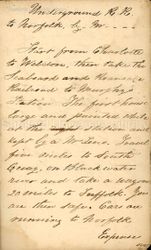 Underground R. R.
to Norfolk, by Mr
Start from Charlotte
to Weldon, then take the
Seaboard and Roanoke
Railroad to Murphy's
Station. The first house
large and painted white
at the right station and
kept by a Mr
five miles to South
on Blackwater
river and take a wagon
20 miles to Suffolk. You
are then safer. Cars are
running to Norfolk
Expense